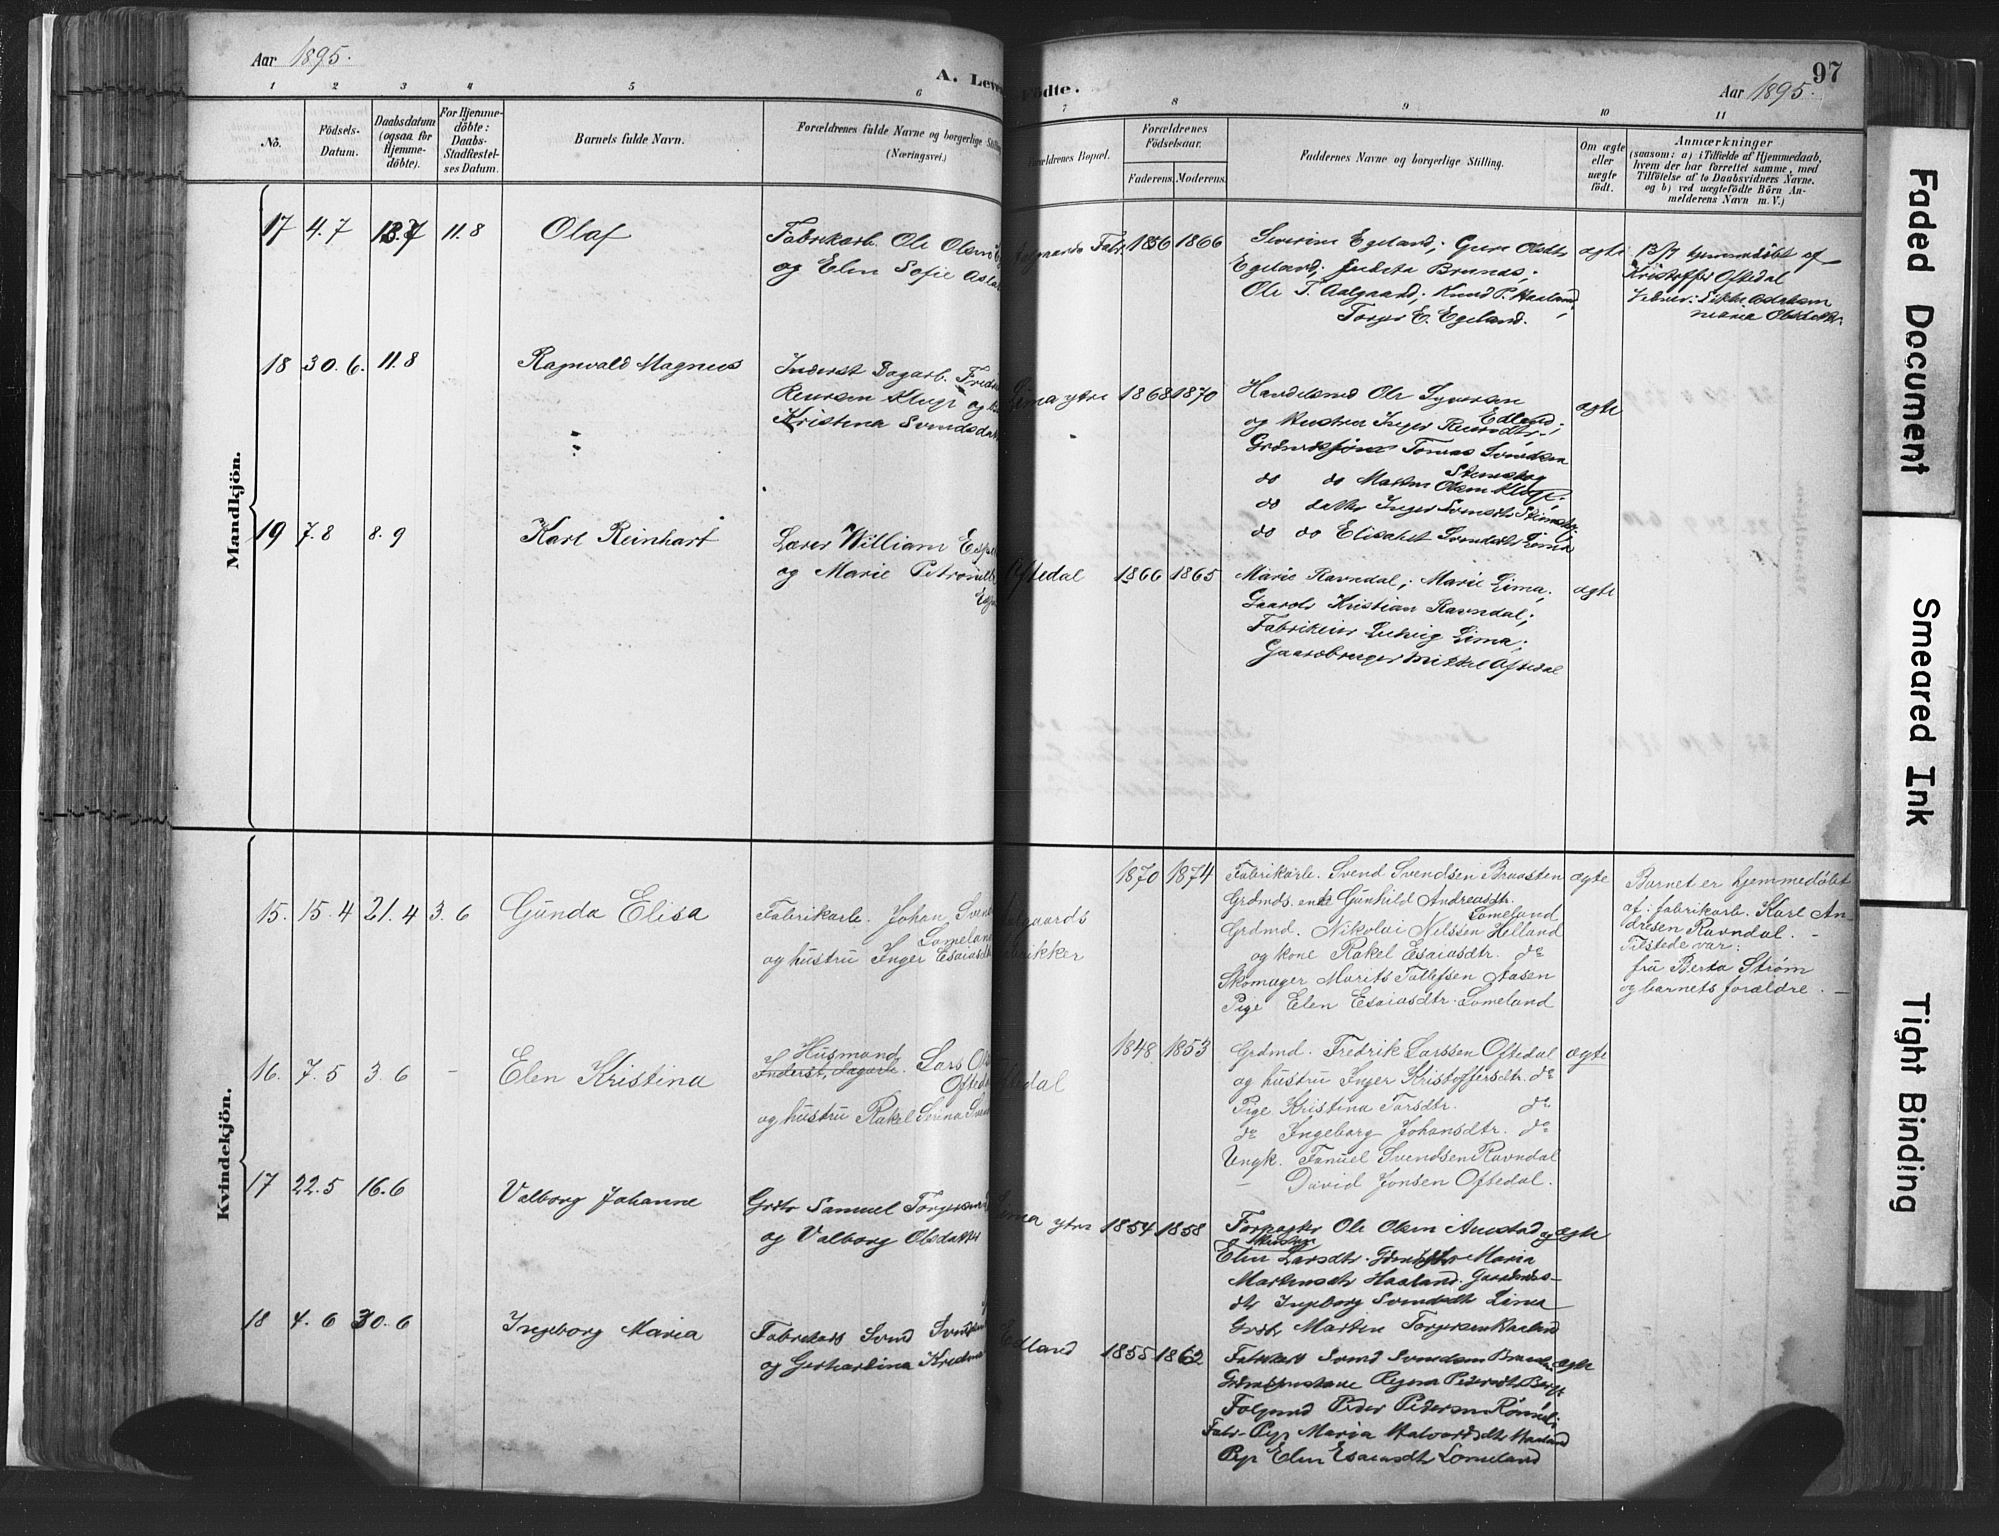 Aar 1895.
A. Leve
Födte.
97
Aar 1895.
1 2 3 4 5 6 7 8 9 10 11
No.
Födsels-
Datum.
Daabsdatum
(ogsaa for
Hjemme-
döbte).
For Hjemme-
döbte:
Daabs-
Stadfæstel-
ses Datum.
Barnets fulde Navn.
Forældrenes fulde Navne og borgerlige Stilling
(Næringsvei.)
Forældrenes Bopæl.
Forældrenes
Födselsaar.
Faderens. Moderens.
Faddernes Navne og borgerlige Stilling.
Om ægte
eller
uægte
födt.
Anmærkninger
(saasom: a) i Tilfælde af Hjemmedaab,
hvem der har forrettet samme, med
Tilföielse af to Daabsvidners Navne,
og b) ved uægtefödte Börn An-
melderens Navn m. V.)
Mandkjön.
17 4.7 13.7 11.8 Olaf
Fabrikarb. Ole Olsen
og Elen Sofie Asla
Aalgaards Fabr. 1856 1866
Severine Egeland; Gure Olsdtr
Egeland;
Ole T. Aalgaard; Knud P. Haaland,
Torger E. Egeland.
ægte
13/7 hjemmedöbt af
Kristoffer Oftedal
18 30.6. 11.8
Ragnvald Magnus
Inderst Dagarb. Fredr
og
Kristina Svendsdatt
Lima ytre 1868 1870
Handelsmd Ole Syversen
Edland;
og Hustru Inger
Tomas Svendsen
do do
do datter Inger Svendsdtr
do do Elisabet Svendsdtr Lima
ægte
19 7.8 8.9
Karl Reinhart
Lærer William
og Marie Petronille
Oftedal 1866 1865
Marie Ravndal; Marie Lima;
Gaardb Kristian Ravndal;
Fabrikeier Ludvig Lima;
Gaardbruger Mikkel Oftedal
ægte
Kvindekjön.
15. 15.4 21.4 3.6 Gunda Elisa
Fabrikarb. Johan Sven
Lomeland
og hustru Inger Esaiasdt
Aalgaards
Fabrikker
1870 1874
Fabrikarb. Svend Svendsen Braasten
Grdmds. enke Gunhild Andreasdtr.
Lomeland
Grdmd. Nikolai Nilssen Helland
og kone Rakel Esaiasdtr. do
Skomager Morits Tollefsen Aasen
Pige Elen Esaiasdtr. Lomeland
ægte
Barnet er hjemmedöbt
af: fabrikarb. Karl An-
dresen Ravndal. -
Tilstede var:
fru Berta Ström
og barnets forældre. -
16. 7.5 3.6 - Elen Kristina
Husmand
Inderst, Dagarb. Lars Ol
Ofteda
og hustru Rakel Serina Svend
Oftedal
1848 1853
Grdmd. Fredrik Larssen Oftedal
og hustru Inger Kristoffersdtr. do
Pige Kristina Tarsdtr. do
do Ingeborg Johansdtr. do
Ungk. Fanuel Svendsen Ravndal
- David Jonsen Oftedal.
ægte
17 22.5 16.6 Valborg Johanne
Grdbr Samuel Torgersen
og Valborg Olsdatter
Lima ytre 1854 1858
Ole Olsen Aunstad og
Hustru
Elen Larsdtr. Maria
Martinsdtr Haaland.
dtr Ingeborg Svendsdtr Lima
Grdbr Martin Torgersen Haaland
ægte
18 4.6 30.6 Ingeborg Maria
Fabrikarb Svend Svendsen
og Gerhardina
Edland 1855 1862
Fabrikarb Svend Svendsen
Regina Pedersdtr
Peder Pedersen
Fabr. Pige Maria Halvordsdtr Haaland
Pige Elen Esaiasdtr Lomeland
ægte
Faded Document
Smeared Ink
Tight Binding